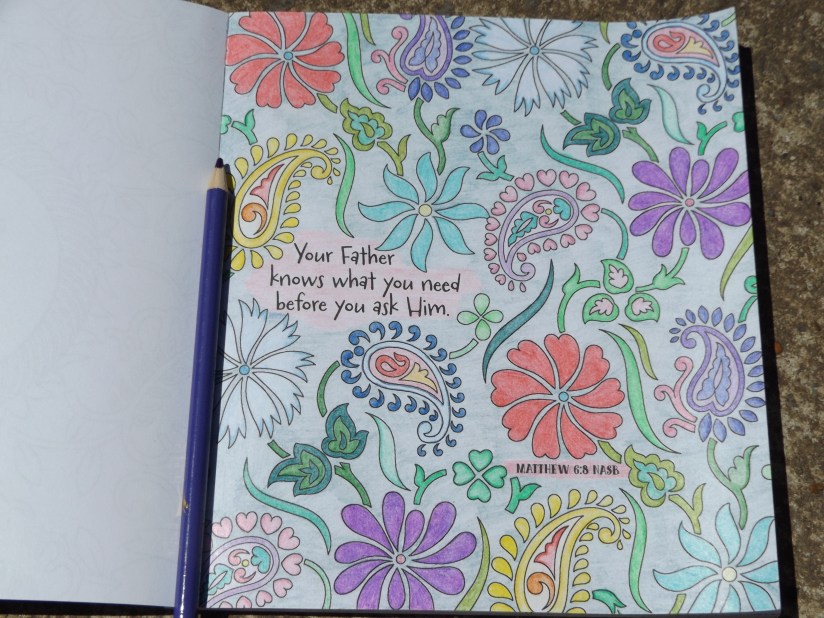 Your Father
knows what you need
before you ask Him.
MATTHEW 6:8 NASB